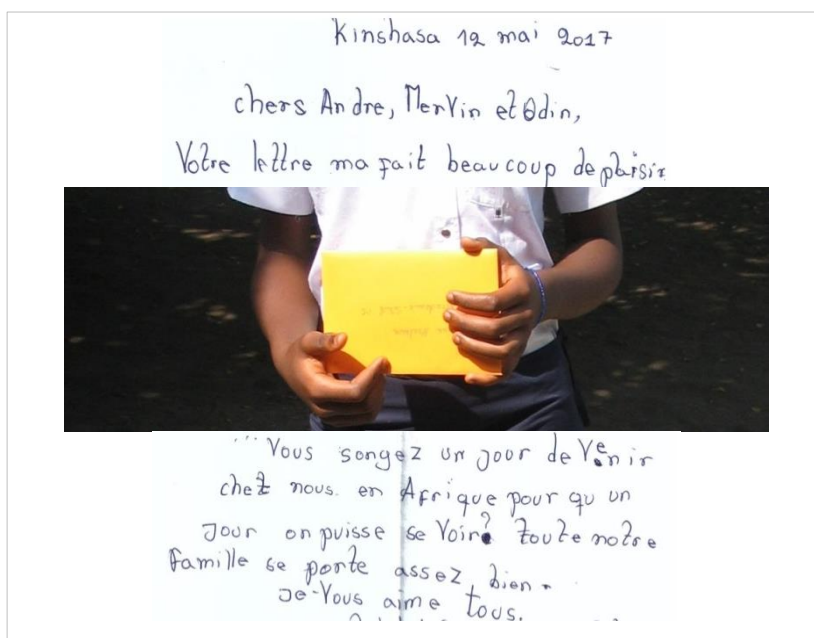 Kinshasa 12 mai 2017
chers Andre, Mervin et Odin,
Votre lettre ma fait beaucoup de plaisir
... Vous songez un jour de Venir
chez nous. en Afrique pour qu un
Jour on puisse se Voir? toute notre
Famille se porte assez bien.
Je-Vous aime tous.